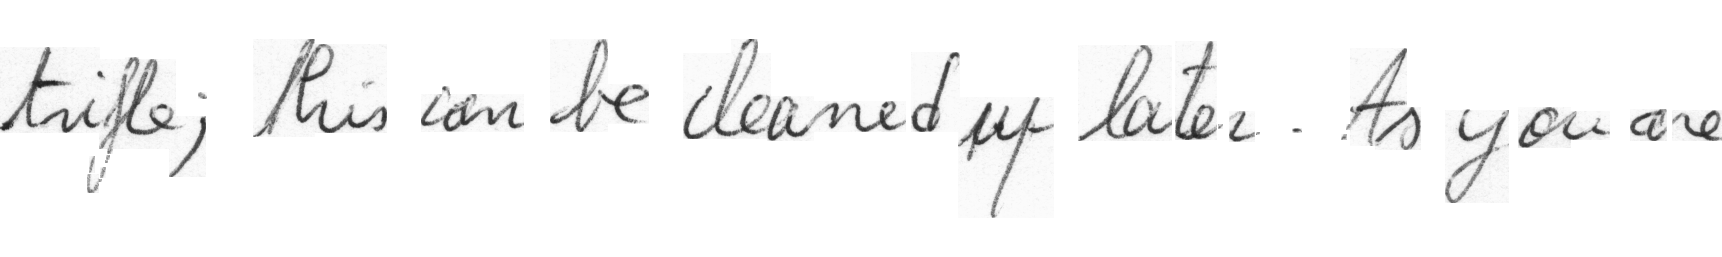 trifle; this can be cleaned up later. As you are